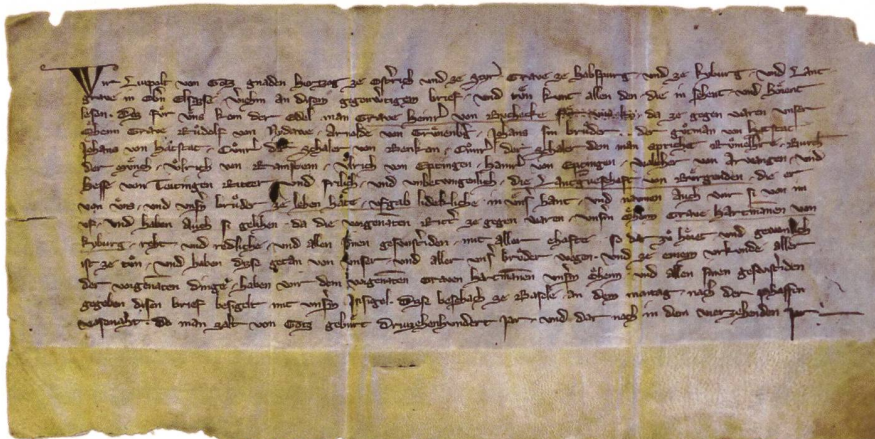 Wir Lupolt von Gotz gnaden Hertzog ze Osterich und ze Styr Grave ze Habspurg und ze Kyburg und Lant
grave in Obern Elsasse veriehen an disem gegenwurtigem brief und tůn kunt allen den die in sehent und hörent
lesen Das für uns kom der Edel man Grave Heinr von da ze gegen waren unser
Oheim Grave Růdolf von Nydowe Arnolde von Grůnenb Johans sin brůder der
Johans von Cůnr der Schaler von Cůnr der Schaler dem man sprichet Burch
der Mönch Ůlrich von Ramstein Ůlrich von Eptingen Hanma von Eptingen Walther von Arwangen und
Hesse von Teitingen Ritter und frilich und unbetwungenlich die Lantgrafschaft von Bürgenden die er
von uns und unsern brůder ze lehen hatte ufgab lideklich in unser hant und namen auch wir si von im
uf und haben auch si gelihen da die vorgenaten Ritter ze gegen waren unserm Oheim Grave Hartmanen von
Kyburg reht und redliche und allen sinen geswistreden mit aller ehafte so dar zů höret und gewonlich
ist ze tůn und haben dise getan von unser und aller unser brůder wegen und ze einem urkunde aller
der vorgenaten dinge haben wir dem vorgenaten Graven hartmanen unserm Oheim und allen sinen geswistreden
gegeben disen brief besigelt mit unserm Insigel Dise beschach ze Basile an dem mantag nach der Phaffen
vasenaht do man zalt von Gotz gebürt druzehenhundert Jar und dar nach in dem vierzehenden Jar